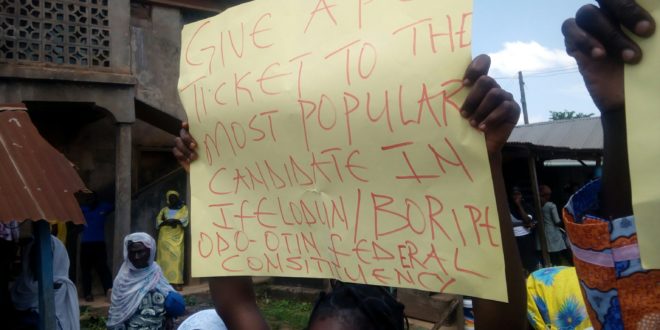 GIVE A
TICKET TO THE
MOST POPULAR
CANDIDATE IN
IFELODUN/BORIPE
ODO-OTIN FEDERAL
CONSTITUENCY